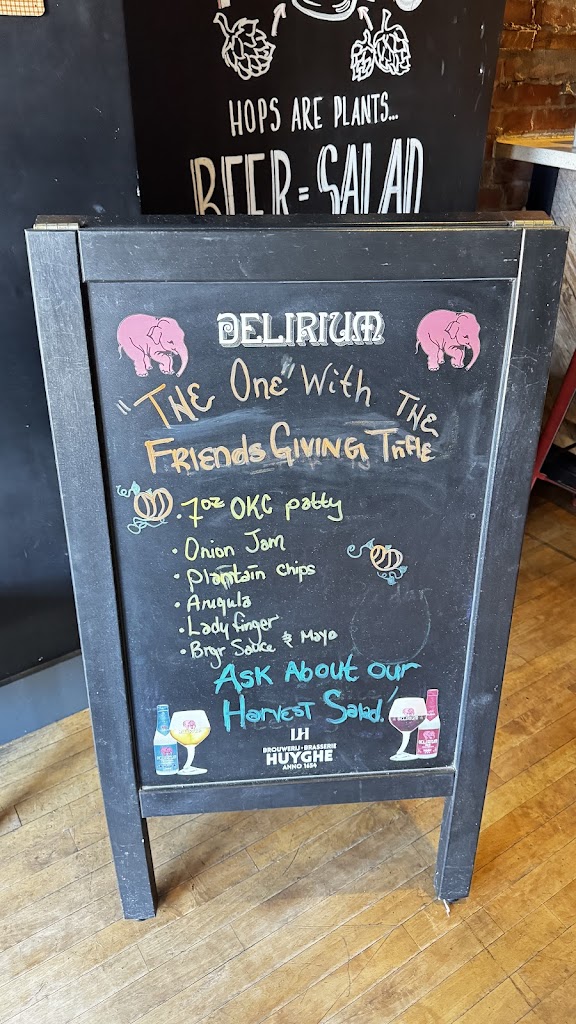 HOPS ARE PLANTS...
BEER = SALAD
DELIRIUM
"THE One" With THE
FRIENDSGIVING TriFLE
• 7oz OKC patty
• Onion Jam
• Plantain chips
• Arugula
• Lady finger
• Brgr Sauce & Mayo
ASK ABOUT our
Harvest Salad!
LH
BROUWERIJ • BRASSERIE
HUYGHE
ANNO 1654